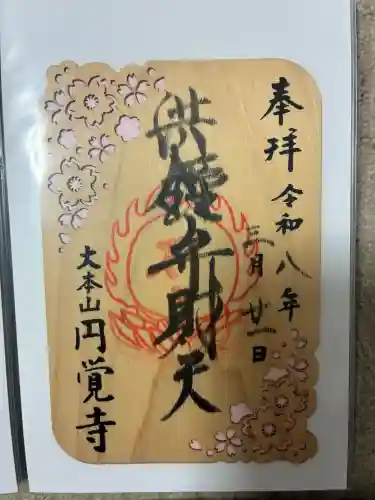 奉拝
令和八年
三月廿一日
洪鐘弁財天
大本山
円覚寺